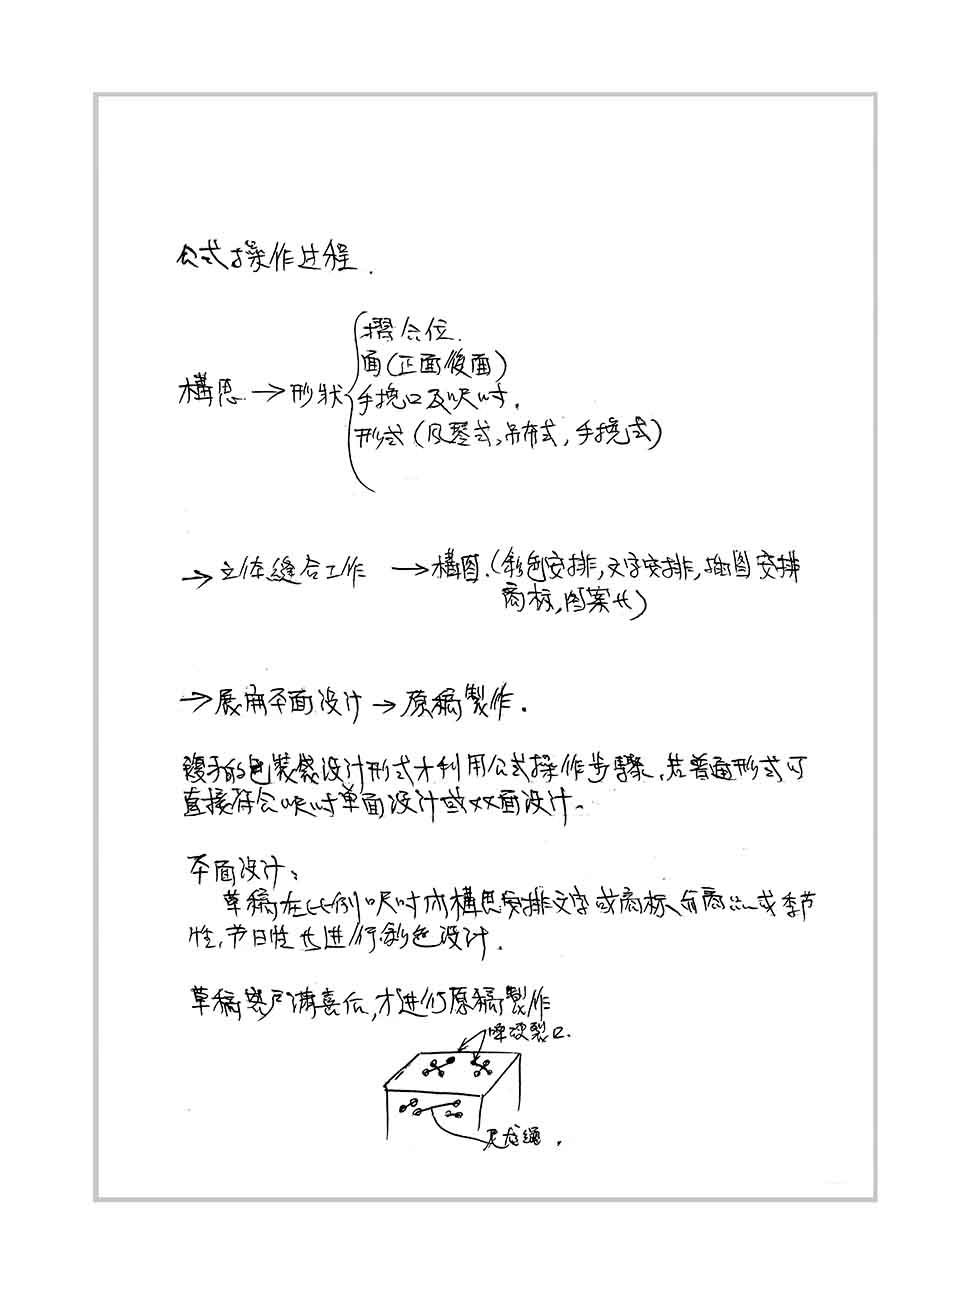 公式操作过程.
摺合位.
面(正面後面)
構思→形狀 手挽口及呎吋.
形式(风琴式,吊布式,手挽式)
→立体縫合工作 →構图.(彩色安排,文字安排,插图安排
商标,图案廿)
→展开平面设计→原稿製作.
複予的包装袋设计形式才利用公式操作步驟,若普通形式可
直接符合呎吋单面设计或双面设计.
平面设计:
草稿在比例呎吋内構思安排文字或商标,商品或季节
性,节日性廿进行彩色设计.
草稿客户满意后,才进行原稿製作
裂口.
尼龙繩.